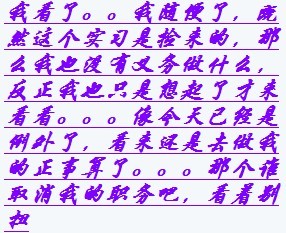 我看了。。我随便了，既
然这个实习是捡来的，那
么我也没有义务做什么，
反正我也只是想起了才来
看看。。。像今天已经是
例外了，看来还是去做我
的正事算了。。。那个谁
取消我的职务吧，看着别
扭